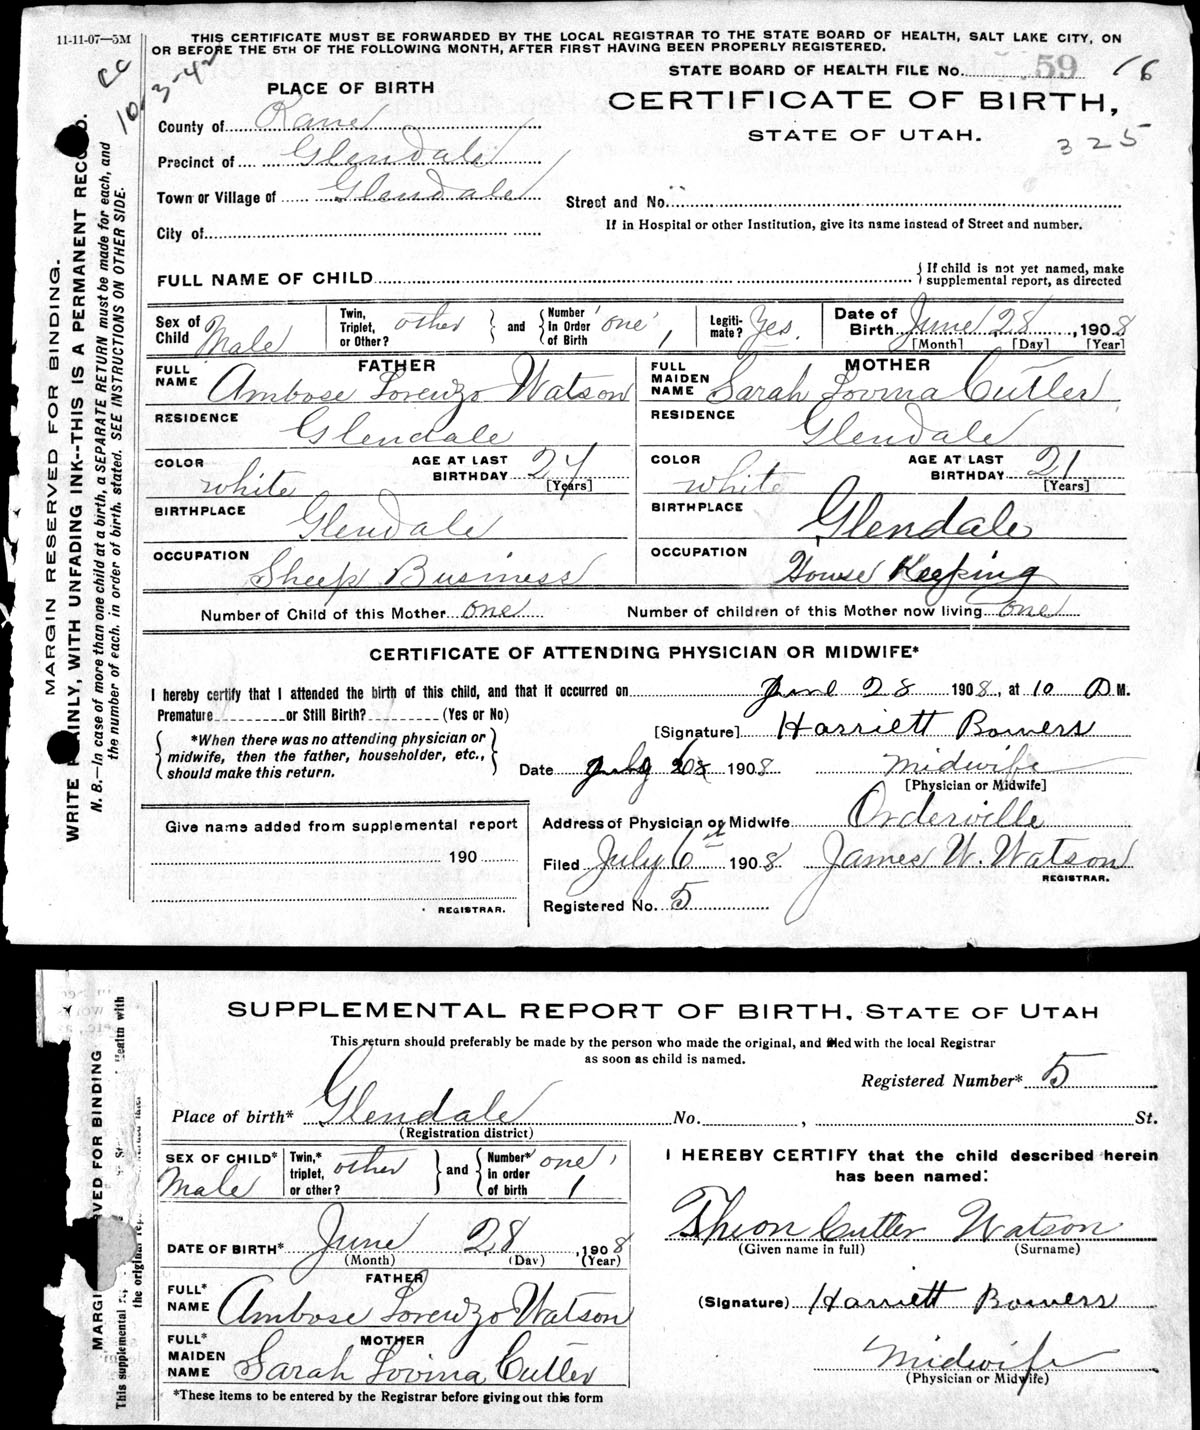 11-11-07—5M
THIS CERTIFICATE MUST BE FORWARDED BY THE LOCAL REGISTRAR TO THE STATE BOARD OF HEALTH, SALT LAKE CITY, ON
OR BEFORE THE 5TH OF THE FOLLOWING MONTH, AFTER FIRST HAVING BEEN PROPERLY REGISTERED.
CC
10-3-42
STATE BOARD OF HEALTH FILE No. 59 16
PLACE OF BIRTH
CERTIFICATE OF BIRTH,
STATE OF UTAH.
325
County of Kane
Precinct of Glendale
Town or Village of Glendale
Street and No.
If in Hospital or other Institution, give its name instead of Street and number.
City of
FULL NAME OF CHILD
{ If child is not yet named, make
supplemental report, as directed
Sex of Child Male
Twin, Triplet, or Other? other } and { Number in Order of Birth one 1
Legiti-mate? Yes.
Date of Birth June 28, 1908
[Month] [Day] [Year]
FATHER
MOTHER
FULL NAME Ambose Lorenzo Watson
FULL MAIDEN NAME Sarah Lovina Cutler
RESIDENCE Glendale
RESIDENCE Glendale
COLOR white AGE AT LAST BIRTHDAY 24 [Years]
COLOR white AGE AT LAST BIRTHDAY 21 [Years]
BIRTHPLACE Glendale
BIRTHPLACE Glendale
OCCUPATION Sheep Business
OCCUPATION House Keeping
Number of Child of this Mother one
Number of children of this Mother now living one
CERTIFICATE OF ATTENDING PHYSICIAN OR MIDWIFE*
I hereby certify that I attended the birth of this child, and that it occurred on June 28 1908, at 10 M.
Premature or Still Birth? (Yes or No)
[Signature] Harriett Bowers
{ *When there was no attending physician or
midwife, then the father, householder, etc.,
should make this return. }
Date July 1908
Midwife
[Physician or Midwife]
Give name added from supplemental report
190
REGISTRAR.
Address of Physician or Midwife Orderville
Filed July 6th 1908 James W. Watson
REGISTRAR.
Registered No. 5
MARGIN RESERVED FOR BINDING.
WRITE PLAINLY, WITH UNFADING INK--THIS IS A PERMANENT RECORD.
N. B.—In case of more than one child at a birth, a SEPARATE RETURN must be made for each, and
the number of each, in order of birth, stated. SEE INSTRUCTIONS ON OTHER SIDE.
SUPPLEMENTAL REPORT OF BIRTH, STATE OF UTAH
This return should preferably be made by the person who made the original, and filed with the local Registrar
as soon as child is named.
Registered Number* 5
Place of birth* Glendale No. , St.
(Registration district)
SEX OF CHILD* Male
Twin,* triplet, or other? other } and { Number* in order of birth one 1
I HEREBY CERTIFY that the child described herein
has been named:
Theon Cutler Watson
(Given name in full) (Surname)
DATE OF BIRTH* June 28, 1908
(Month) (Day) (Year)
FATHER
FULL* NAME Ambose Lorenzo Watson
(Signature) Harriett Bowers
MOTHER
FULL* MAIDEN NAME Sarah Lovina Cutler
Midwife
(Physician or Midwife)
*These items to be entered by the Registrar before giving out this form